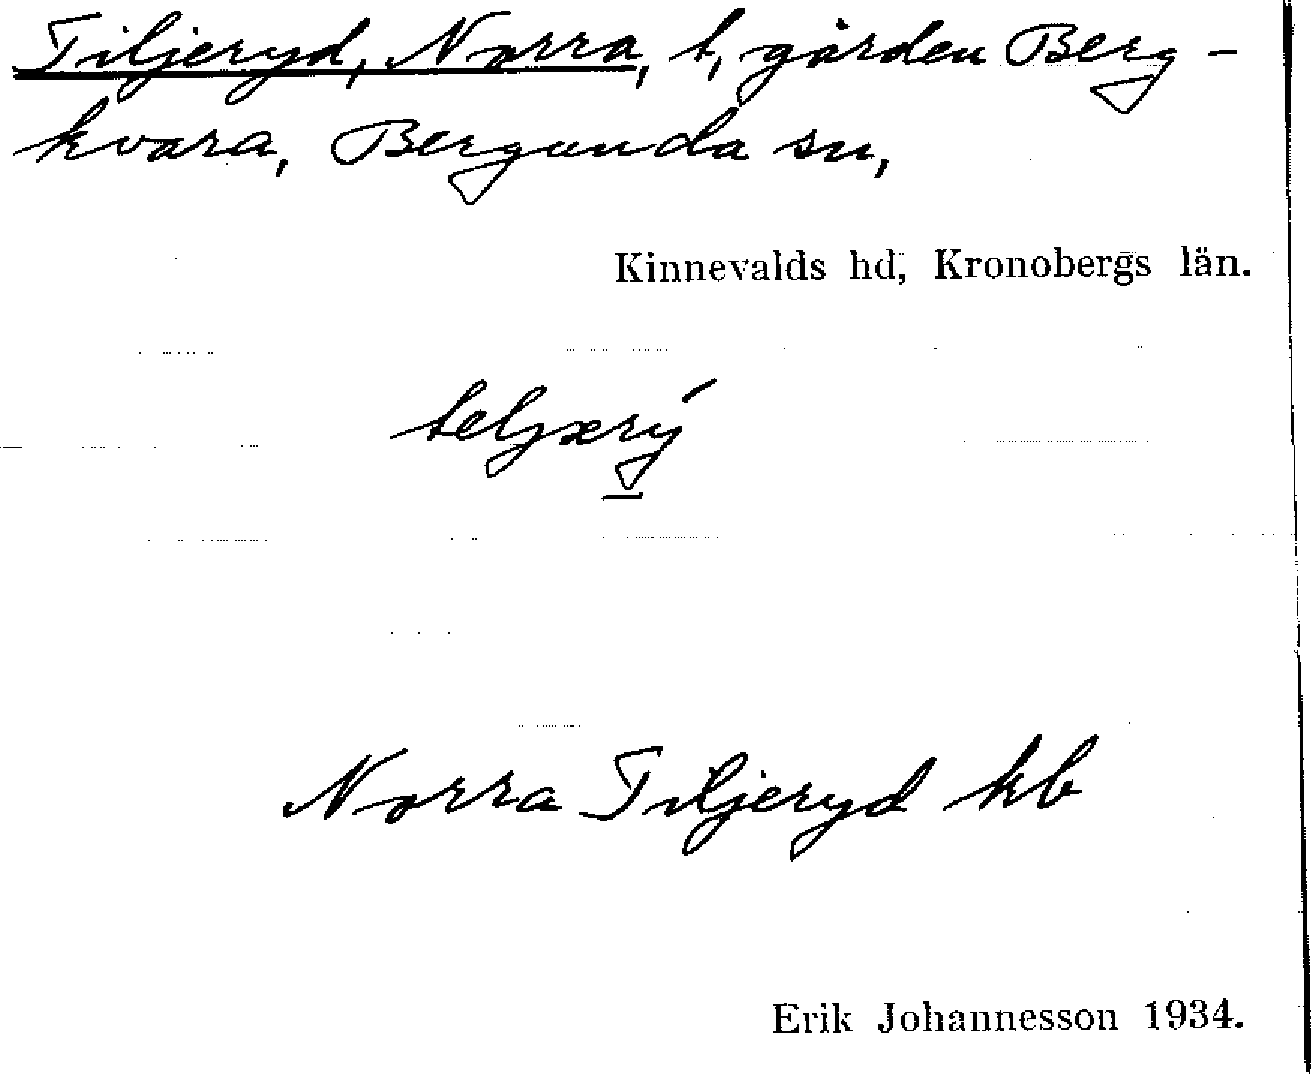 Tiljeryd, Norra, t, gården Berg-
kvara, Bergunda sn,
Kinnevalds hd, Kronobergs län.
teljærý
Norra Tiljeryd kb
Erik Johannesson 1934.